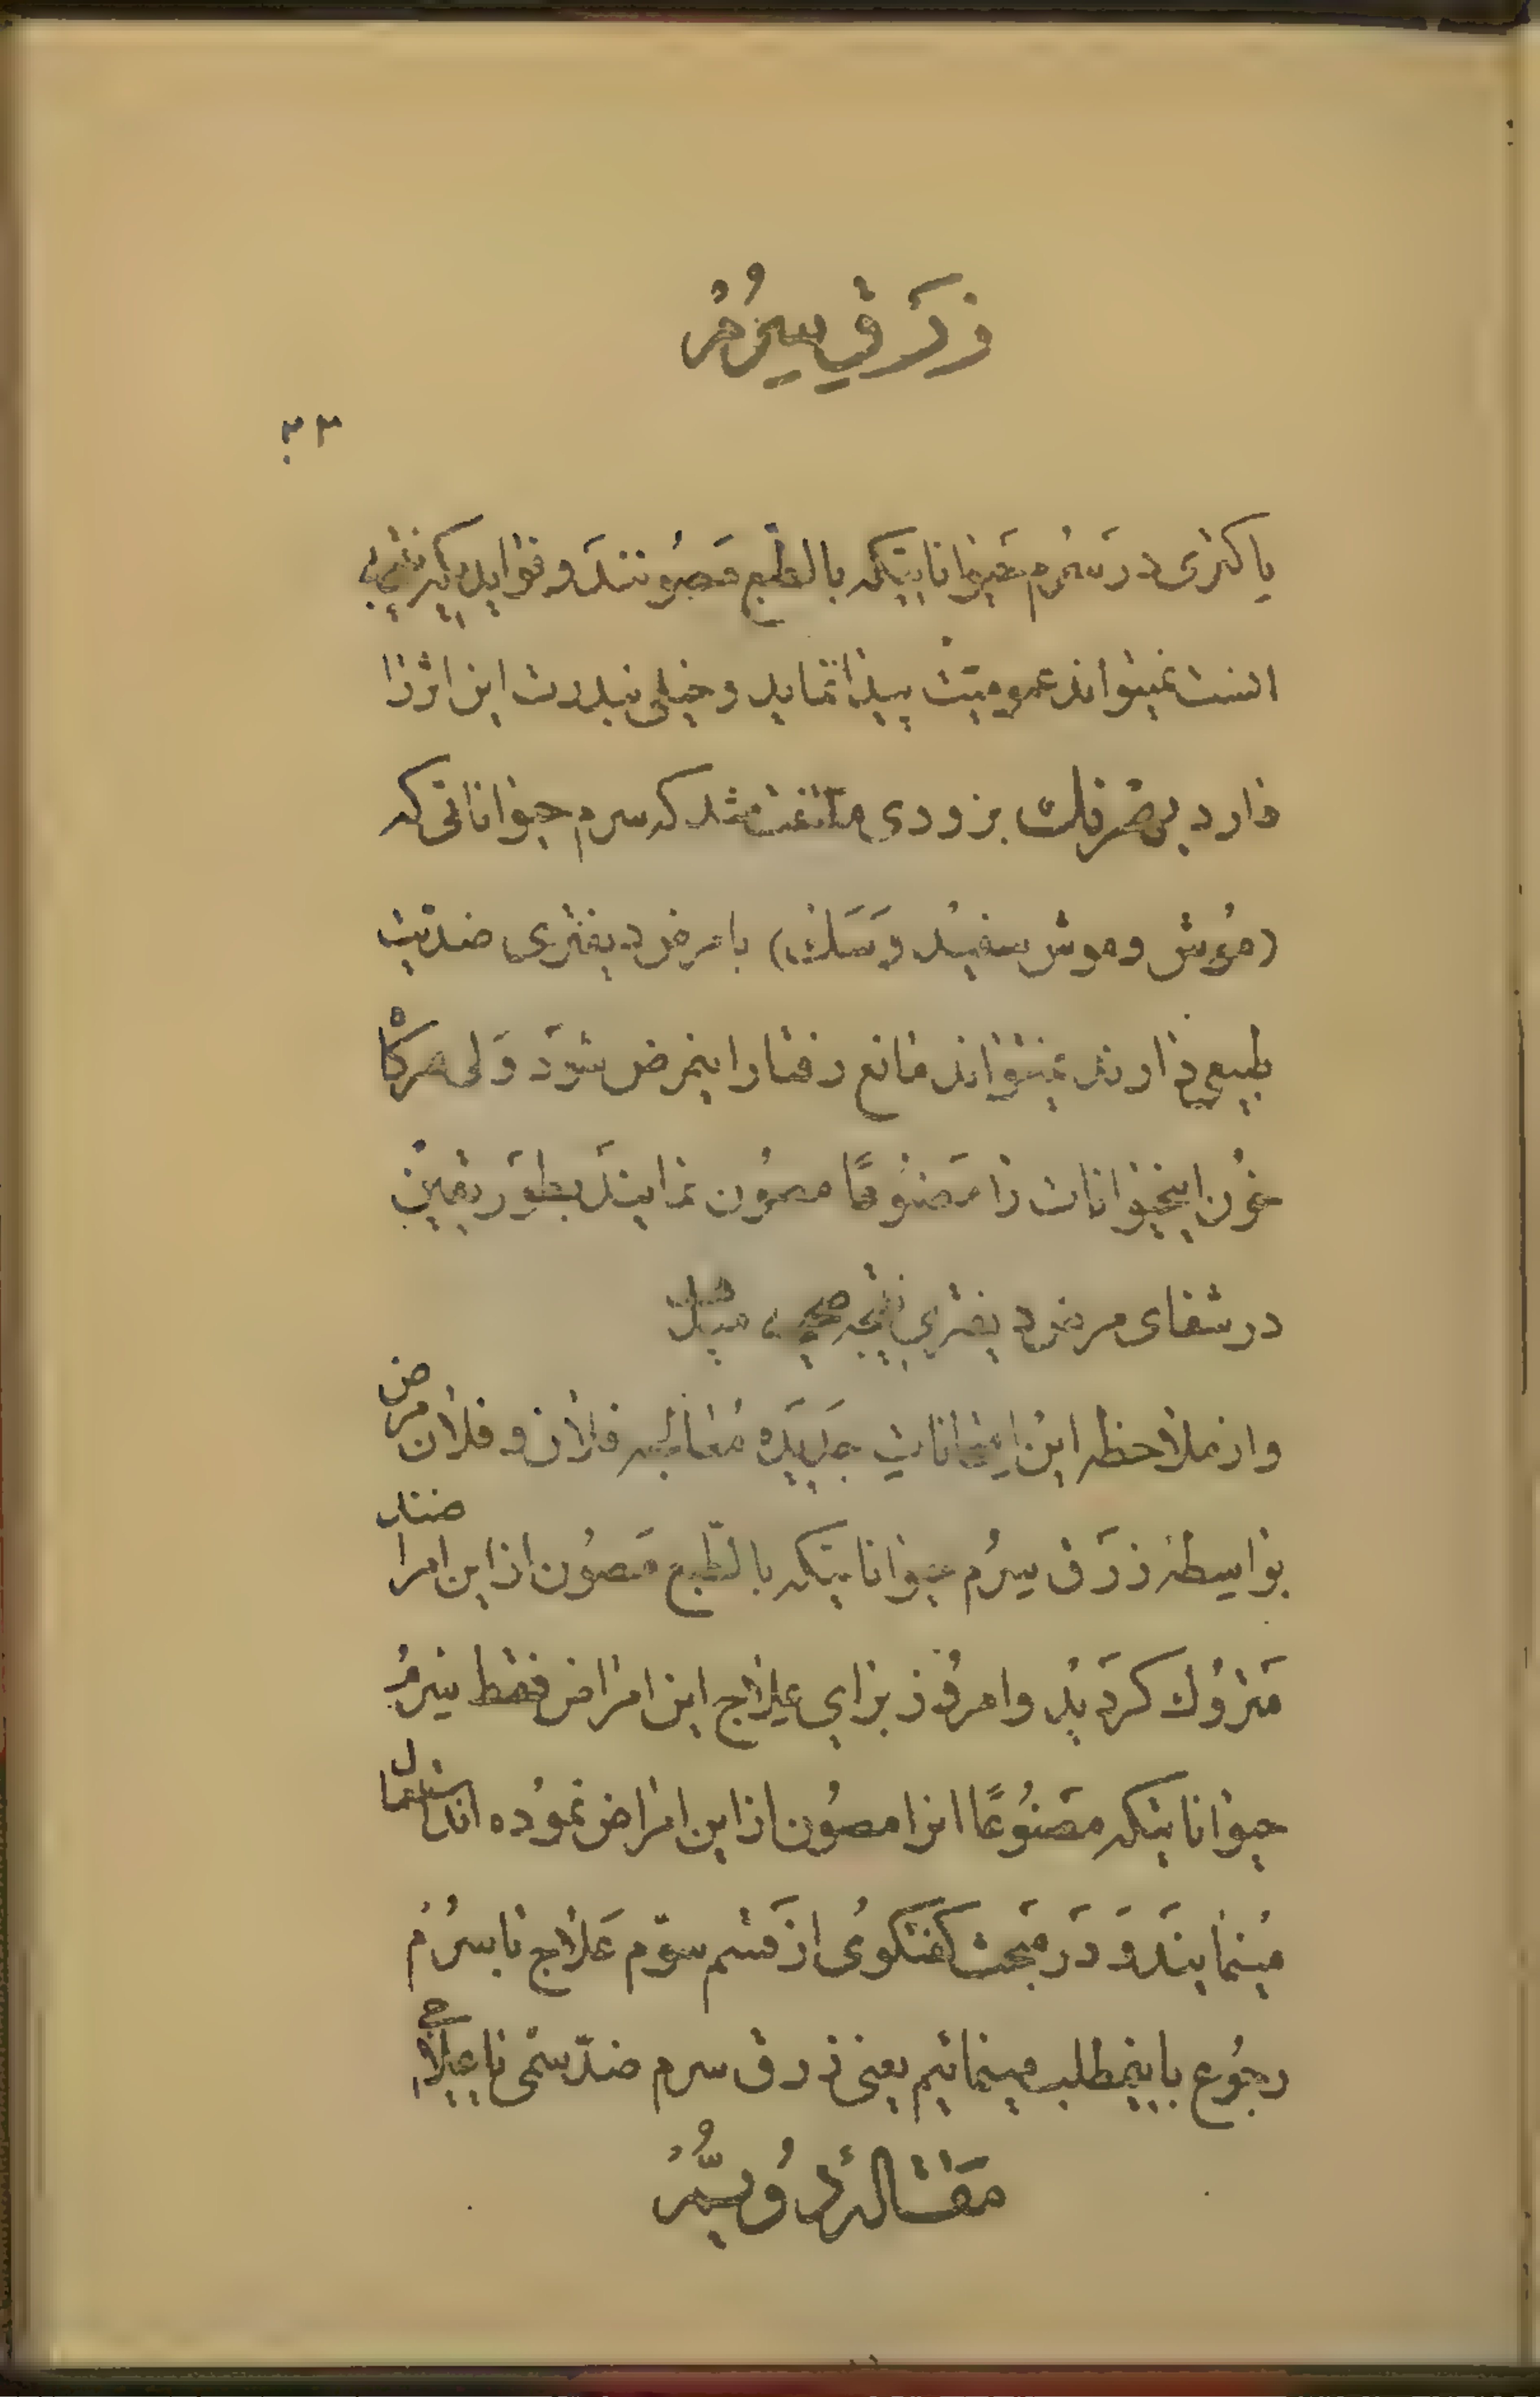 زرق سیرم
۲۳
باکتری در سرم حیواناتیکه بالطبع مصونند و فواید
است نمیتواند عمومیت پیدا نماید و خیلی بندرت این اثر را
دارد بصرافت بزودی ملتفت شد که سرم حیواناتی که
(موش و موش سفید و سگ) با مرض دیفتری ضدیت
طبیعی دارند نمیتواند مانع رفتار اینمرض شود ولی هرگاه
خون اینحیوانات را مصنوعًا مصون نمایند بطور یقین
در شفای مرض دیفتری نتیجه صحیح میدهد
و از ملاحظه این امتحانات جدیده معالجه فلان و فلان مرض
بواسطه زرق سیرم حیواناتیکه بالطبع مصون از این امراضند
متروک گردید و امروز برای علاج این امراض فقط سیرم
حیواناتیکه مصنوعًا انرا مصون از این امراض نموده اند استعمال
مینمایند و در مبحث گفتگوی از قسم سوّم علاج با سرم
رجوع باینمطلب مینمائیم یعنی زرق سرم ضدّ سمّی یا علاجی
مقاله دویّم